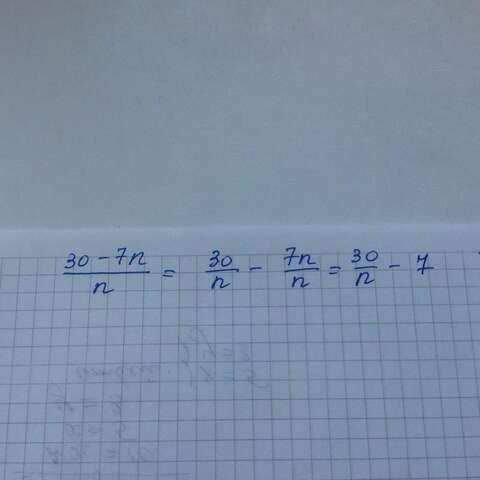 (30 - 7n)/n = 30/n - 7n/n = 30/n - 7